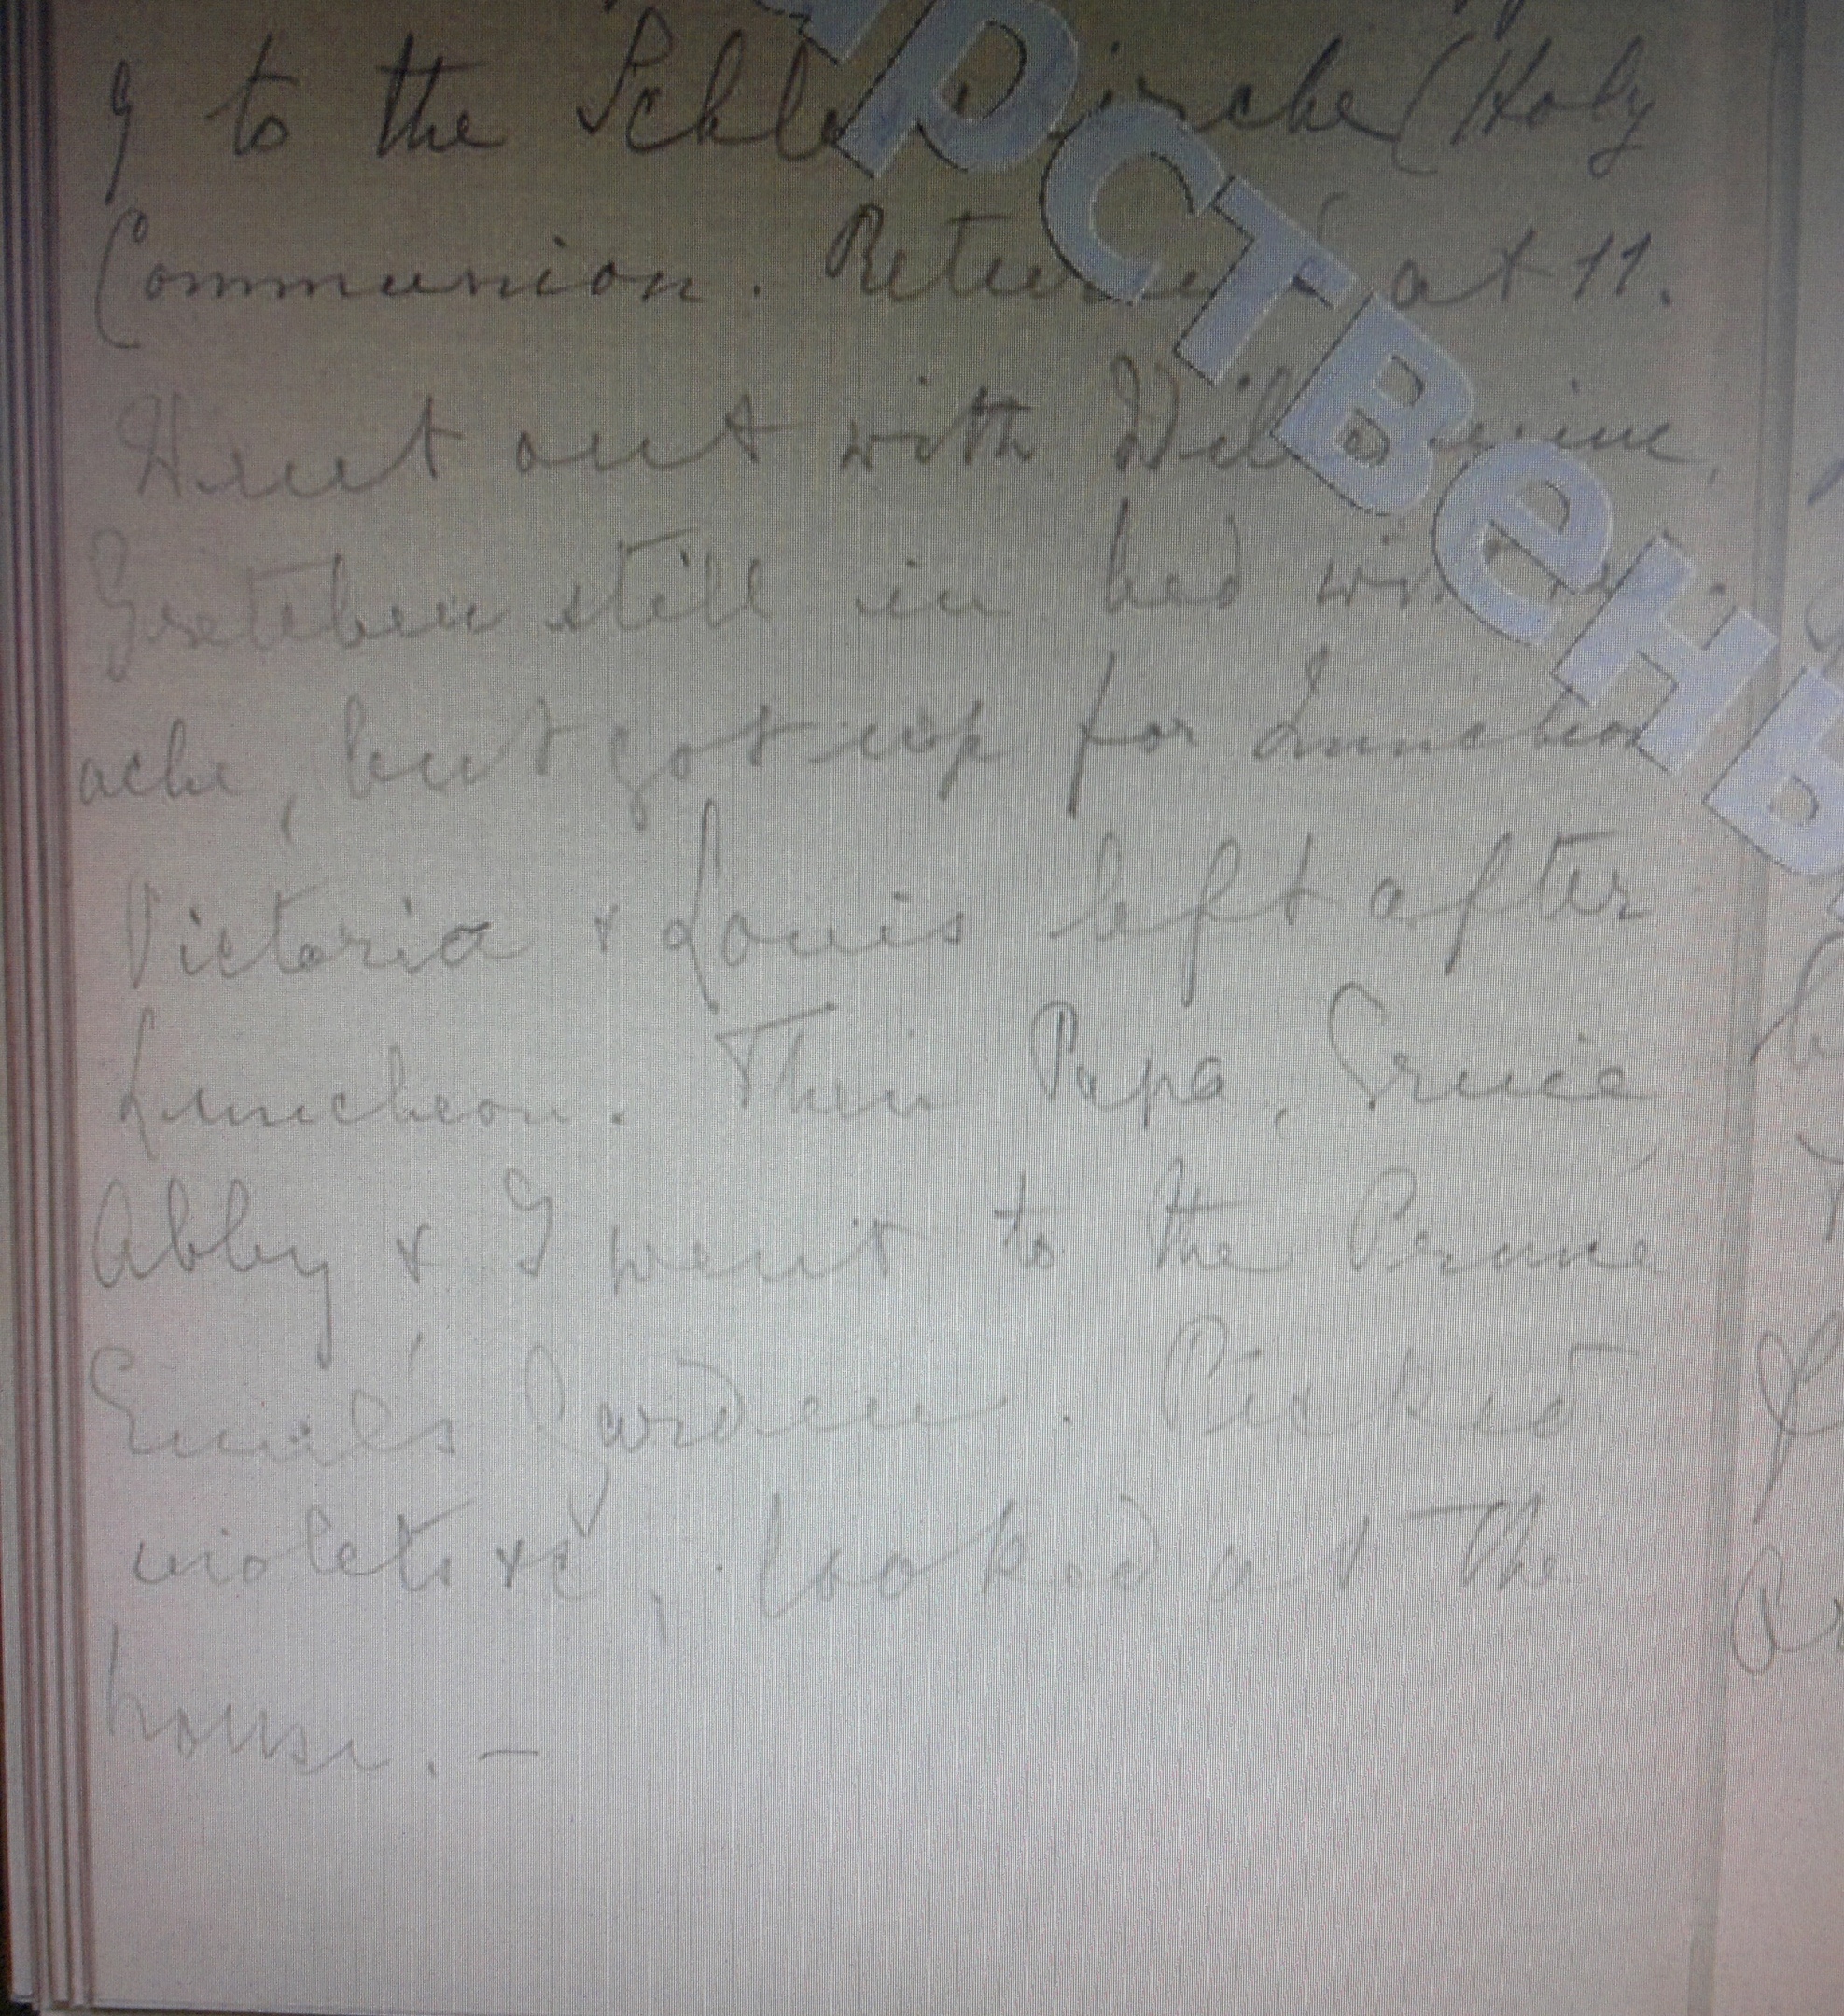 9 to the Schlosskirche (Holy
Communion. Returned at 11.
Went out with Wilhelmine,
Gretchen still in bed with
ache, but got up for Luncheon
Victoria & Louis left after
Luncheon. Then Papa, Ernie,
Abby & I went to the
Emil's Garden. Picked
violets &c, looked at the
house. —
рственны